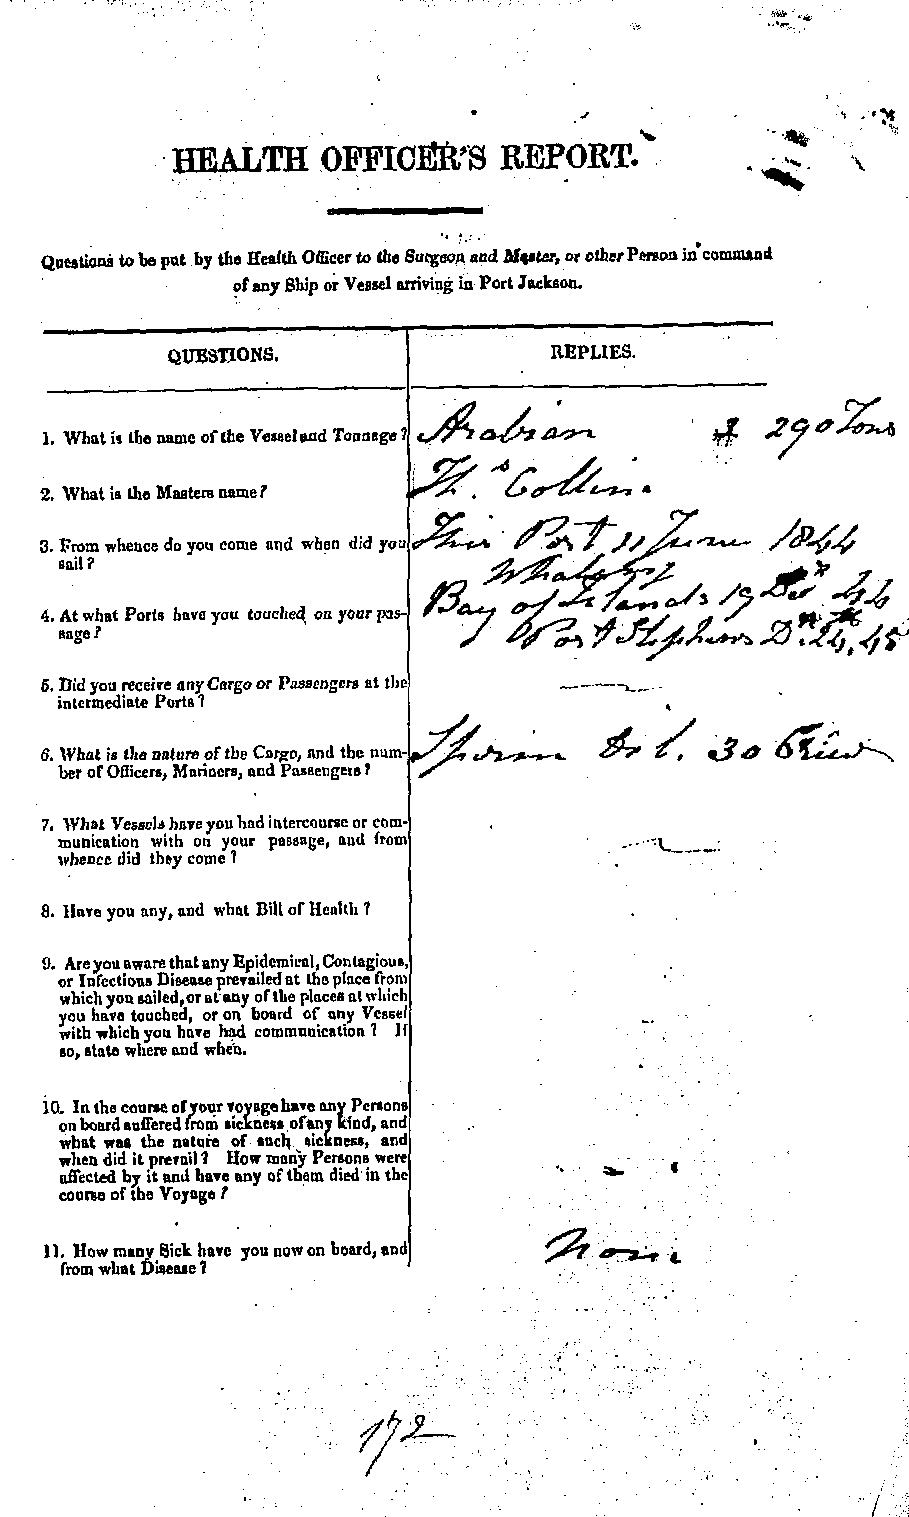 HEALTH OFFICER'S REPORT.
Questions to be put by the Health Officer to the Surgeon and Master, or other Person in command
of any Ship or Vessel arriving in Port Jackson.
QUESTIONS.
REPLIES.
1. What is the name of the Vessel and Tonnage?
Arabian 290 Tons
2. What is the Masters name?
Ths. Collins
3. From whence do you come and when did you
sail?
This Port 11 June 1844
Whaling
4. At what Ports have you touched on your pas-
sage?
Bay of Islands 19 Decr 44
Port Stephens Do. 24, 45
5. Did you receive any Cargo or Passengers at the
intermediate Ports?
6. What is the nature of the Cargo, and the num-
ber of Officers, Mariners, and Passengers?
Sperm Oil. 30 Crew
7. What Vessels have you had intercourse or com-
munication with on your passage, and from
whence did they come?
8. Have you any, and what Bill of Health?
9. Are you aware that any Epidemical, Contagious,
or Infectious Disease prevailed at the place from
which you sailed, or at any of the places at which
you have touched, or on board of any Vessel
with which you have had communication? If
so, state where and when.
10. In the course of your voyage have any Persons
on board suffered from sickness of any kind, and
what was the nature of such sickness, and
when did it prevail? How many Persons were
affected by it and have any of them died in the
course of the Voyage?
11. How many Sick have you now on board, and
from what Disease?
None
172